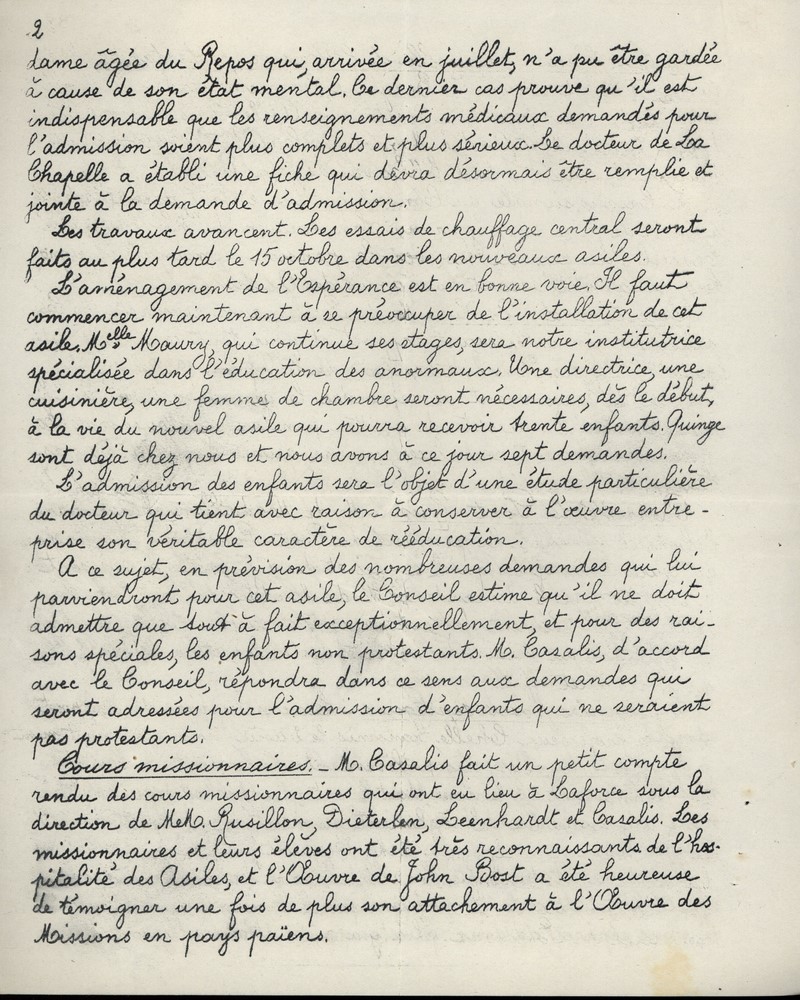 2
dame âgée du Repos qui, arrivée en juillet, n'a pu être gardée
à cause de son état mental. Ce dernier cas prouve qu'il est
indispensable que les renseignements médicaux demandés pour
l'admission soient plus complets et plus sérieux. Le docteur de La
Chapelle a établi une fiche qui devra désormais être remplie et
jointe à la demande d'admission.
Les travaux avancent. Les essais de chauffage central seront
faits au plus tard le 15 octobre dans les nouveaux asiles.
L'aménagement de l'Espérance est en bonne voie. Il faut
commencer maintenant à se préoccuper de l'installation de cet
asile. Melle Maury, qui continue ses stages, sera notre institutrice
spécialisée dans l'éducation des anormaux. Une directrice, une
cuisinière, une femme de chambre seront nécessaires, dès le début,
à la vie du nouvel asile qui pourra recevoir trente enfants. Quinze
sont déjà chez nous et nous avons à ce jour sept demandes.
L'admission des enfants sera l'objet d'une étude particulière
du docteur qui tient avec raison à conserver à l'œuvre entre-
prise son véritable caractère de rééducation.
A ce sujet, en prévision des nombreuses demandes qui lui
parviendront pour cet asile, le Conseil estime qu'il ne doit
admettre que tout à fait exceptionnellement, et pour des rai-
sons spéciales, les enfants non protestants. M. Casalis, d'accord
avec le Conseil, répondra dans ce sens aux demandes qui
seront adressées pour l'admission d'enfants qui ne seraient
pas protestants.
Cours missionnaires. - M. Casalis fait un petit compte
rendu des cours missionnaires qui ont eu lieu à Laforce sous la
direction de MM. Rusillon, Dieterlen, Leenhardt et Casalis. Les
missionnaires et leurs élèves ont été très reconnaissants de l'hos-
pitalité des Asiles, et l'Œuvre de John Bost a été heureuse
de témoigner une fois de plus son attachement à l'Œuvre des
Missions en pays païens.